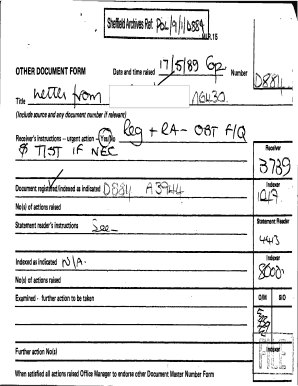 Sheffield Archives Ref: POL/9/1/D884
M.P.15
OTHER DOCUMENT FORM Date and time raised 17/5/89 Number D884
Title Letter from N6430
(Include source and any document number if relevant)
Receiver's instructions - urgent action - Yes/No Reg + RA - OBT F/Q
Receiver
T/ST IF NEC
3789
Document registered/indexed as indicated D884 A3944
Indexer
No(s) of actions raised
Statement reader's instructions See
Statement Reader
4413
Indexed as indicated N/A
Indexer
8000
No(s) of actions raised
Examined - further action to be taken
O/M SIO
Further action No(s)
Indexer
FILE
When satisfied all actions raised Office Manager to endorse other Document Master Number Form